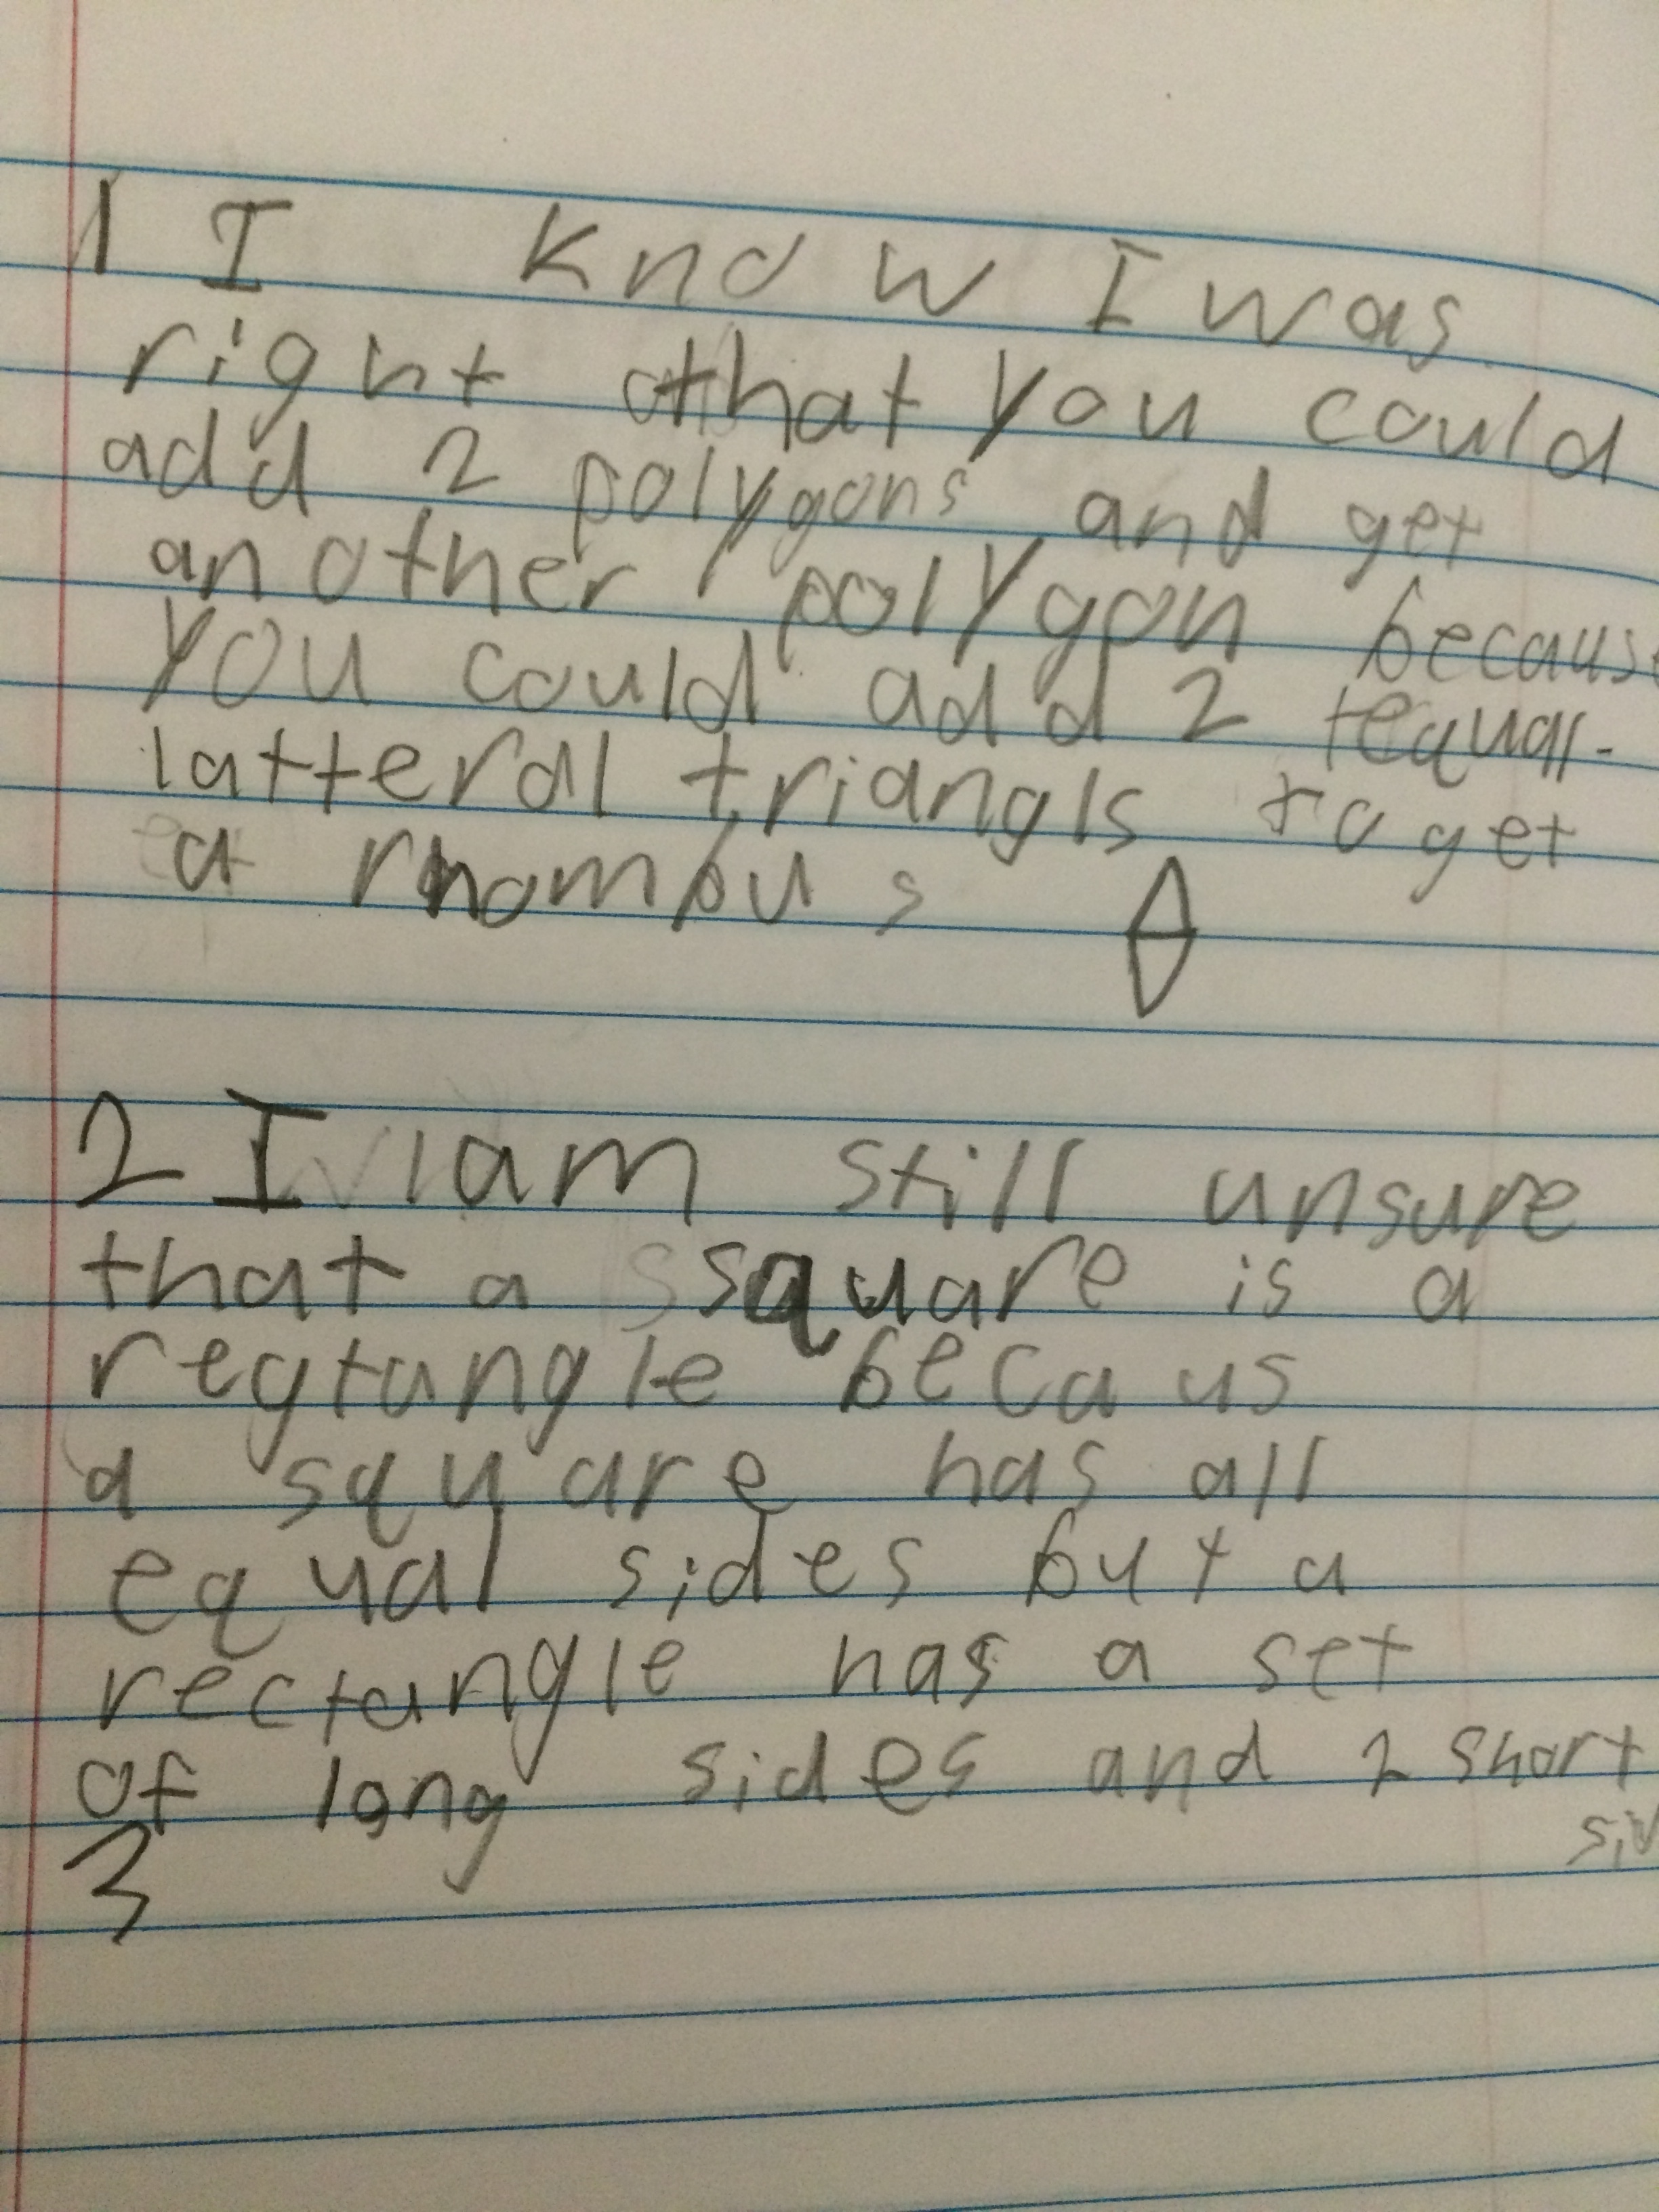 1 I know I was
right that you could
add 2 polygons and get
another polygon because
you could add 2 equal-
latteral triangls to get
a rhombus
2 I am still unsure
that a square is a
regtangle becaus
a square has all
equal sides but a
rectangle has a set
of long sides and 2 short
3